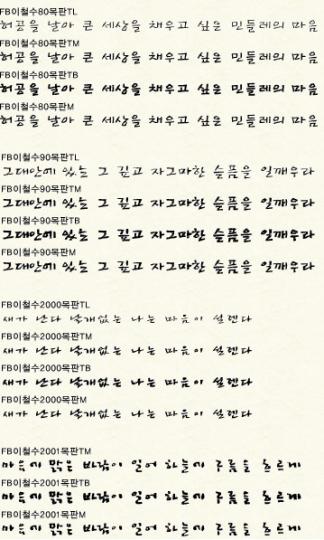 FB이철수80목판TL
허공을 날아 큰 세상을 채우고 싶은 민들레의 마음
FB이철수80목판TM
허공을 날아 큰 세상을 채우고 싶은 민들레의 마음
FB이철수80목판TB
허공을 날아 큰 세상을 채우고 싶은 민들레의 마음
FB이철수80목판M
허공을 날아 큰 세상을 채우고 싶은 민들레의 마음
FB이철수90목판TL
그대안에 있는 그 깊고 자그마한 슬픔을 일깨우라
FB이철수90목판TM
그대안에 있는 그 깊고 자그마한 슬픔을 일깨우라
FB이철수90목판TB
그대안에 있는 그 깊고 자그마한 슬픔을 일깨우라
FB이철수90목판M
그대안에 있는 그 깊고 자그마한 슬픔을 일깨우라
FB이철수2000목판TL
새가 난다 날개없는 나는 마음이 설렌다
FB이철수2000목판TM
새가 난다 날개없는 나는 마음이 설렌다
FB이철수2000목판TB
새가 난다 날개없는 나는 마음이 설렌다
FB이철수2000목판M
새가 난다 날개없는 나는 마음이 설렌다
FB이철수2001목판TM
마음이 맑은 바람이 일어 하늘에 구름을 흐르게
FB이철수2001목판TB
마음이 맑은 바람이 일어 하늘에 구름을 흐르게
FB이철수2001목판M
마음이 맑은 바람이 일어 하늘에 구름을 흐르게